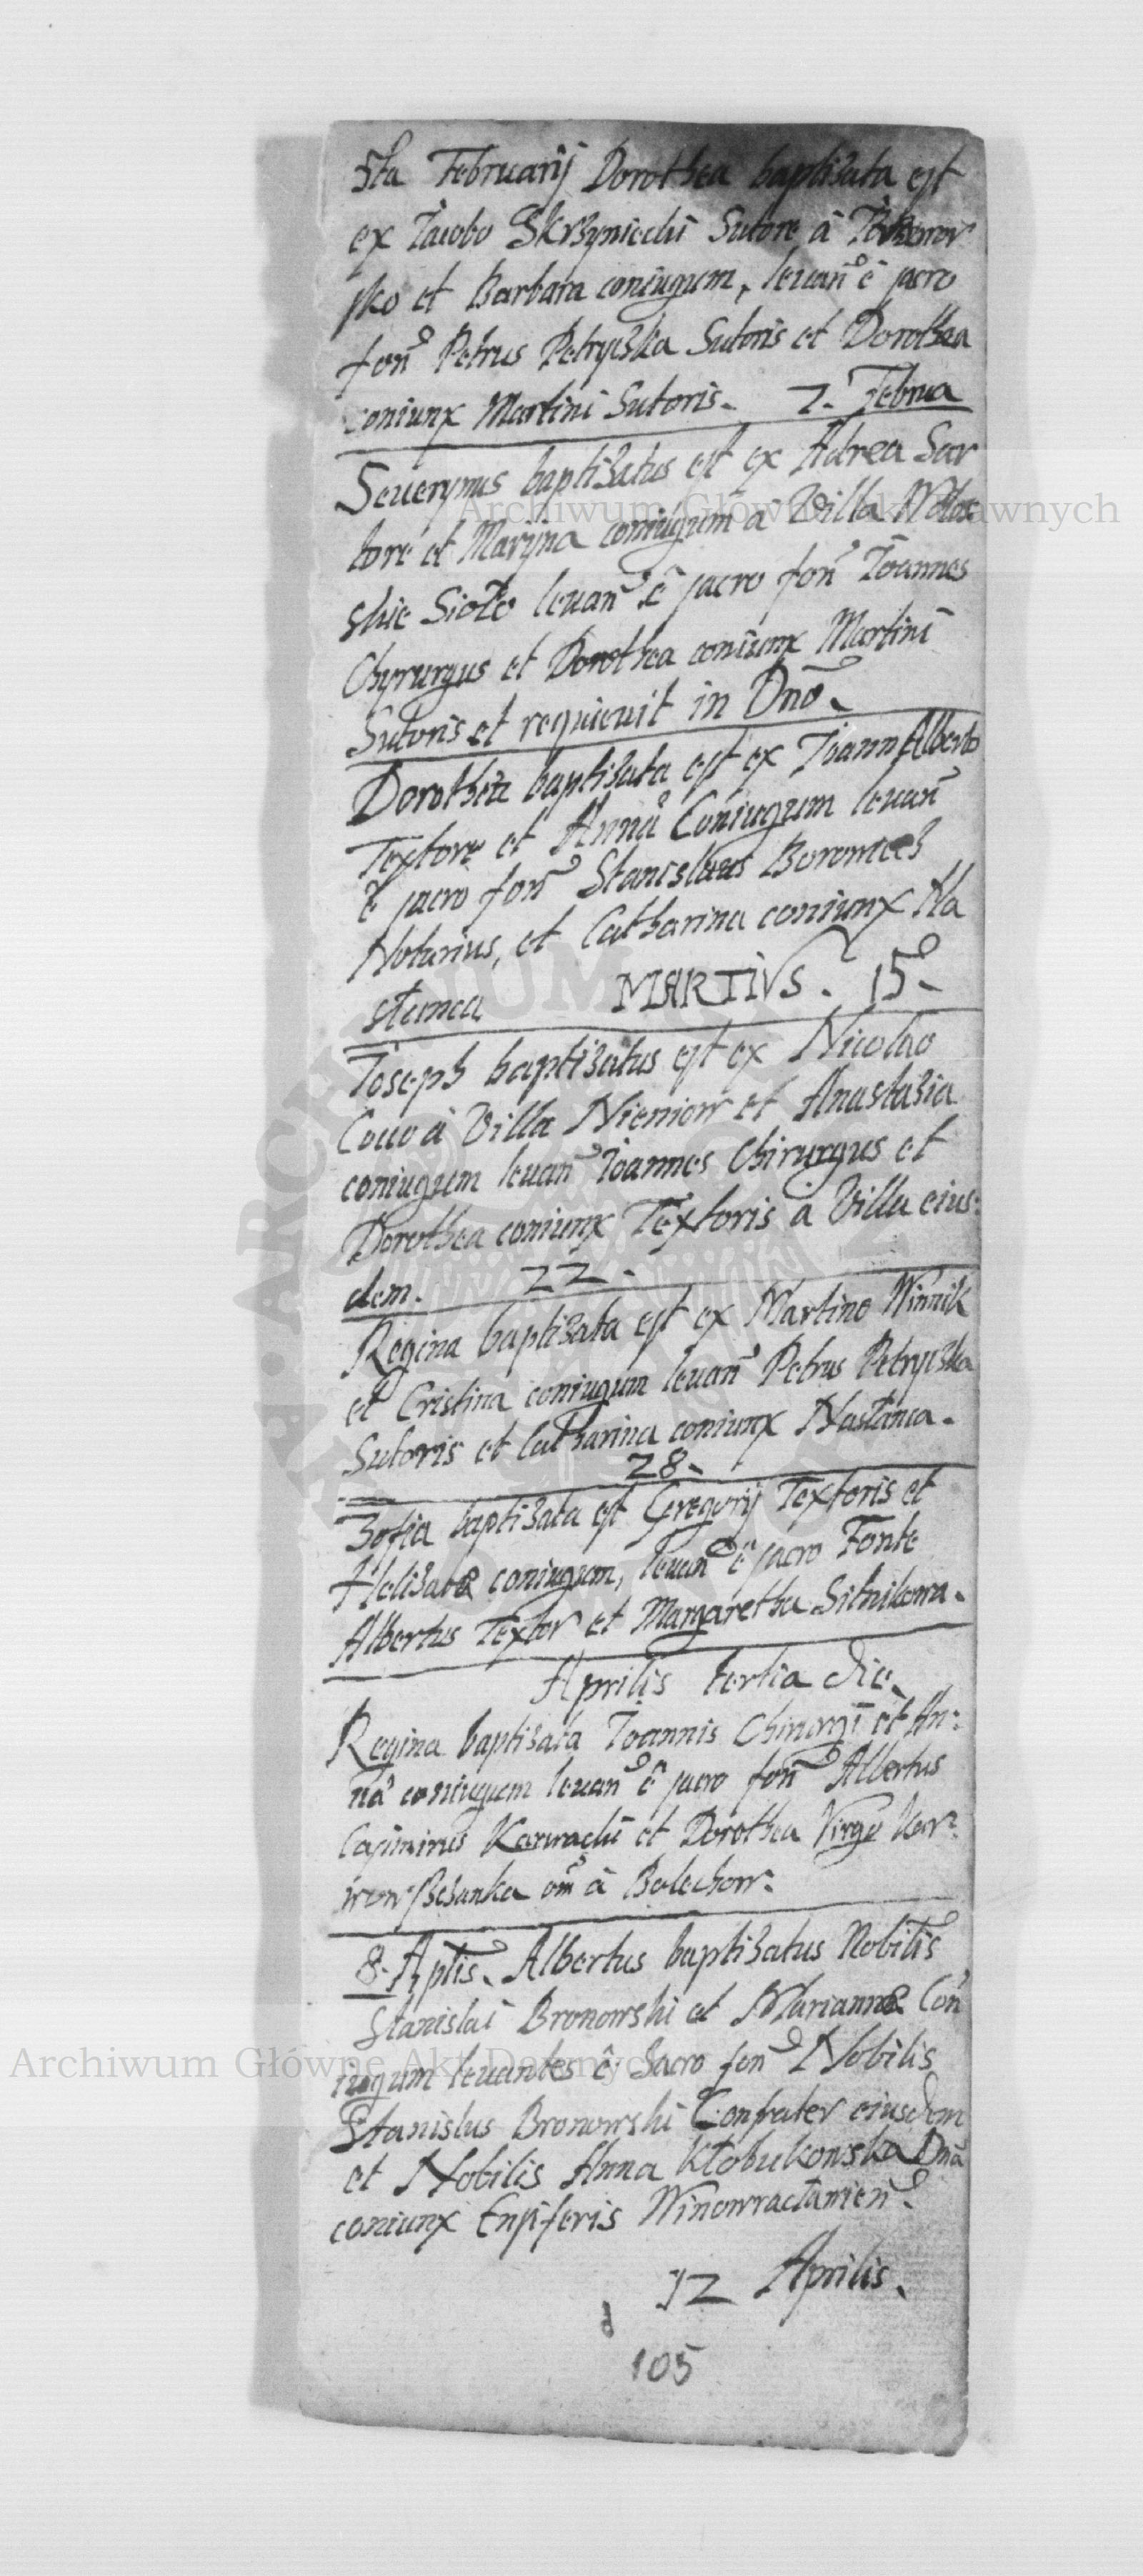 5ta Februarij Dorothea baptisata est
ex Jacobo Skrzyniecki Sutore â
sko et Barbara coniugum, leuanê sacro
fon Petrus Petryczka Sutoris et Dorothea
coniunx Martini Sutoris. 7. Februa
Seuerynus baptizatus est ex Adrea Sar
tore et Maryna coniugum a Villa Wolos
skie Sioło leuan ê sacro fon Joannes
Chyrurgus et Dorothea coniunx Martini
Sutoris et requieuit in Dno.
Dorothea baptizata est ex Alberto
Textore et Anna Coniugum leuan
ê sacro fon Stanislaus
Notarius, et Catharina coniunx Na
stamca MARTIVS. 15.
Joseph baptizatus est ex Nicolao
Coco â Villa Nieniow et Anastasia
coniugum leuan Joannes Chirurgus et
Dorothea coniunx Textoris a Villa eius:
dem. 22.
Regina baptizata est ex Martino Winnik
et Cristina coniugum leuan Petrus Petryczka
Sutoris et Catharina coniunx Nastanca.
28.
Zofia baptizata est Gregorij Textoris et
coniugum, leuan ê sacro Fonte
Albertus Textor et Margaretha Sitnikowa.
Aprilis tertia die.
Regina baptisata Joannis Chirurgi et An:
na coniugum leuan ê sacro fon Albertus
Casimirus Karwacki et Dorothea Virgo Kar:
â Bolechow:
8. Aplis. Albertus baptizatus Nobilis
Stanislai Bronowski et Marianna Con
iugum leuantes ê Sacro fon Nobilis
Stanislus Bronowski Confrater eiusdem
et Nobilis Anna Kłobukowska Dna
coniunx Ensiferis
12 Aprilis.
105
Archiwum Główne Akt Dawnych
Archiwum Główne Akt Dawnych